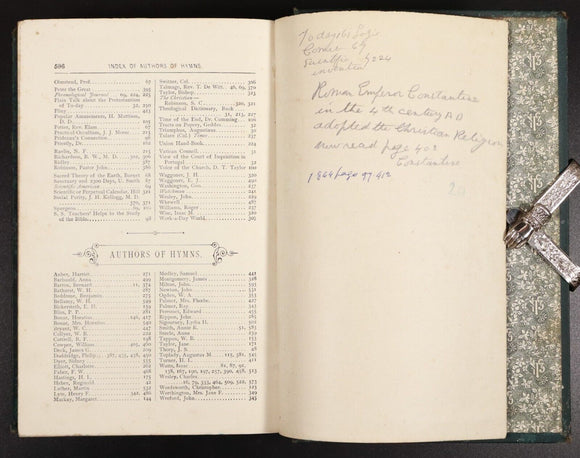 596 INDEX OF AUTHORS OF HYMNS.
Olmstead, Prof. 67
Peter the Great 395
Phrenological Journal 69, 224, 225
Plain Talk about the Protestantism
of To-day 32, 250
Pliny 215
Popular Amusements, H. Mattison,
D. D. 205
Potter, Rev. Elam 67
Practical-Occultism, J. J. Morse 213
Prideaux's Connection
Priestly, Dr. 162
Ravlin, N. F. 215
Richardson, R. W., M. D. 302, 306
Ridley 387
Robinson, Pastor John
Sacred Theory of the Earth, Burnet 68
Sanctuary and 2300 Days, U. Smith 67
Scientific American 69
Scientific or Perpetual Calendar, Hill 321
Social Purity, J. H. Kellogg, M. D.
370, 371
Spurgeon
S. S. Teachers' Helps to the Study
of the Bible 98
Switzer, Cal. 306
Talmage, Rev. T. De Witt 46, 69, 370
Taylor, Bishop 215
The Christian
Robinson, S. C. 320, 321
Theological Dictionary, Buck
31, 213, 227
Time of the End, Dr. Cumming 106
Tracts on Popery, Geddes 32
Triumphus, Augustinus 31
Tuam (Col.) Times 237
Union Hand-Book 224
Vatican Council 31
View of the Court of Inquisition in
Portugal 32
Voice of the Church, D. T. Taylor 100
Waggoner, J. H. 320
Waggoner, E. J. 250
Washington, Geo. 237
Watchman 241
Wesley, John 229
Whewell 487
Williams, Roger 237
Wise, Isaac M. 320
Work-a-Day World 305
AUTHORS OF HYMNS.
Auber, Harriet 271
Barbauld, Anna 499
Barton, Bernard 21, 374
Bathurst, W. H. 287
Beddome, Benjamin 273
Bellamy, W. H. 549
Bickersteth, E. H. 159
Bliss, P. P. 281
Bonar, Horatius 246, 417
Bonar, Mrs. Horatius 540
Bryant, W. C. 447
Collyer, W. B. 202
Cotterill, R. F. 198
Cowper, William 405, 460
Deck, James G. 209
Doddridge, Philip 387, 425, 438, 450
Dyer, Sidney 335
Elliott, Charlotte 262
Faber, F. W. 468
Hastings, H. L. 175
Heber, Reginald 42
Luther, Martin 532
Lyte, Henry F. 342, 486
Mackay, Margaret 144
Medley, Samuel 441
Montgomery, James 508
Milton, John 595
Newton, John 531
Ogden, W. A. 353
Palmer, Mrs. Phœbe 427
Palmer, Ray 343
Perronet, Edward 455
Rippon, John 285
Sigourney, Lydia H. 509
Smith, Annie R. 51, 585
Steele, Anna 220
Tappan, W. B. 153
Taylor, Jane 171
Thorp, J. S. 48
Toplady, Augustus M. 115, 381, 545
Turner, H. L. 411
Watts, Isaac 61, 87, 91,
138, 167, 190, 197, 257, 390, 498, 513
Wesley, Charles
16, 79, 333, 464, 509, 522, 573
Wordsworth, Christopher 123
Worthington, Mrs. Jane F. 349
Wreford, John 343
Today
Comet 69
invented
Roman Emperor Constantine
in the 4th century AD
adopted the Christian Religion
now read page 402
Constantine
1864 page 97 412
20